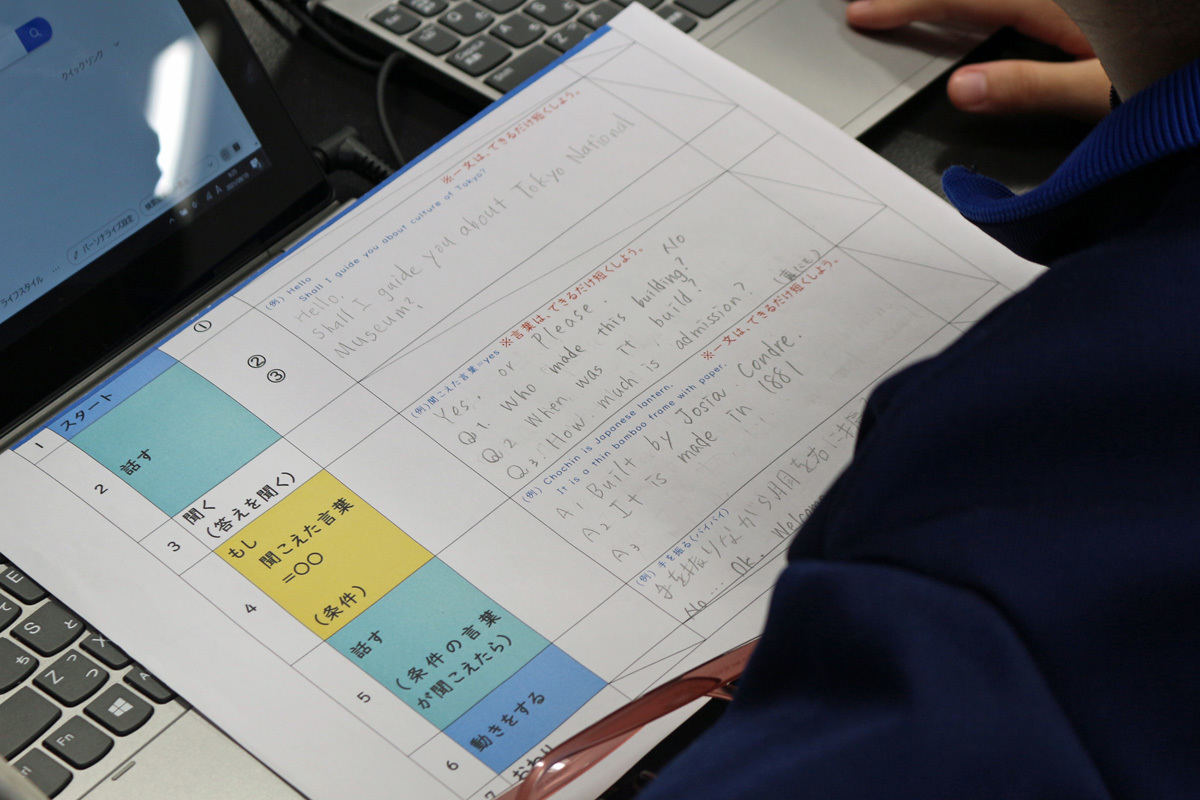 クイックリンク
パーソナライズ設定
ライフスタイル
①
②
③
1
スタート
2
話す
3
聞く
(答えを聞く)
4
もし
聞こえた言葉
=〇〇
(条件)
5
話す
(条件の言葉
が聞こえたら)
6
動きをする
7
おわり
※一文は、できるだけ短くしよう。
(例) Hello
Shall I guide you about culture of Tokyo?
Hello.
Shall I guide you about Tokyo National
Museum?
※言葉は、できるだけ短くしよう。
(例)聞こえた言葉=yes
Yes. or Please. No
Q1. Who made this building?
Q2 When was it build?
Q3. How much is admission?
※一文は、できるだけ短くしよう。
(例) Chochin is Japanese lantern.
It is a thin bamboo frame with paper.
A1 Built by Josia Condre.
A2 It is made in 1881
A3
(例) 手を振る(バイバイ)
手を振りながら
No... Ok. Welcome
E
S
と
ち
Z
つ
X
Fn
A